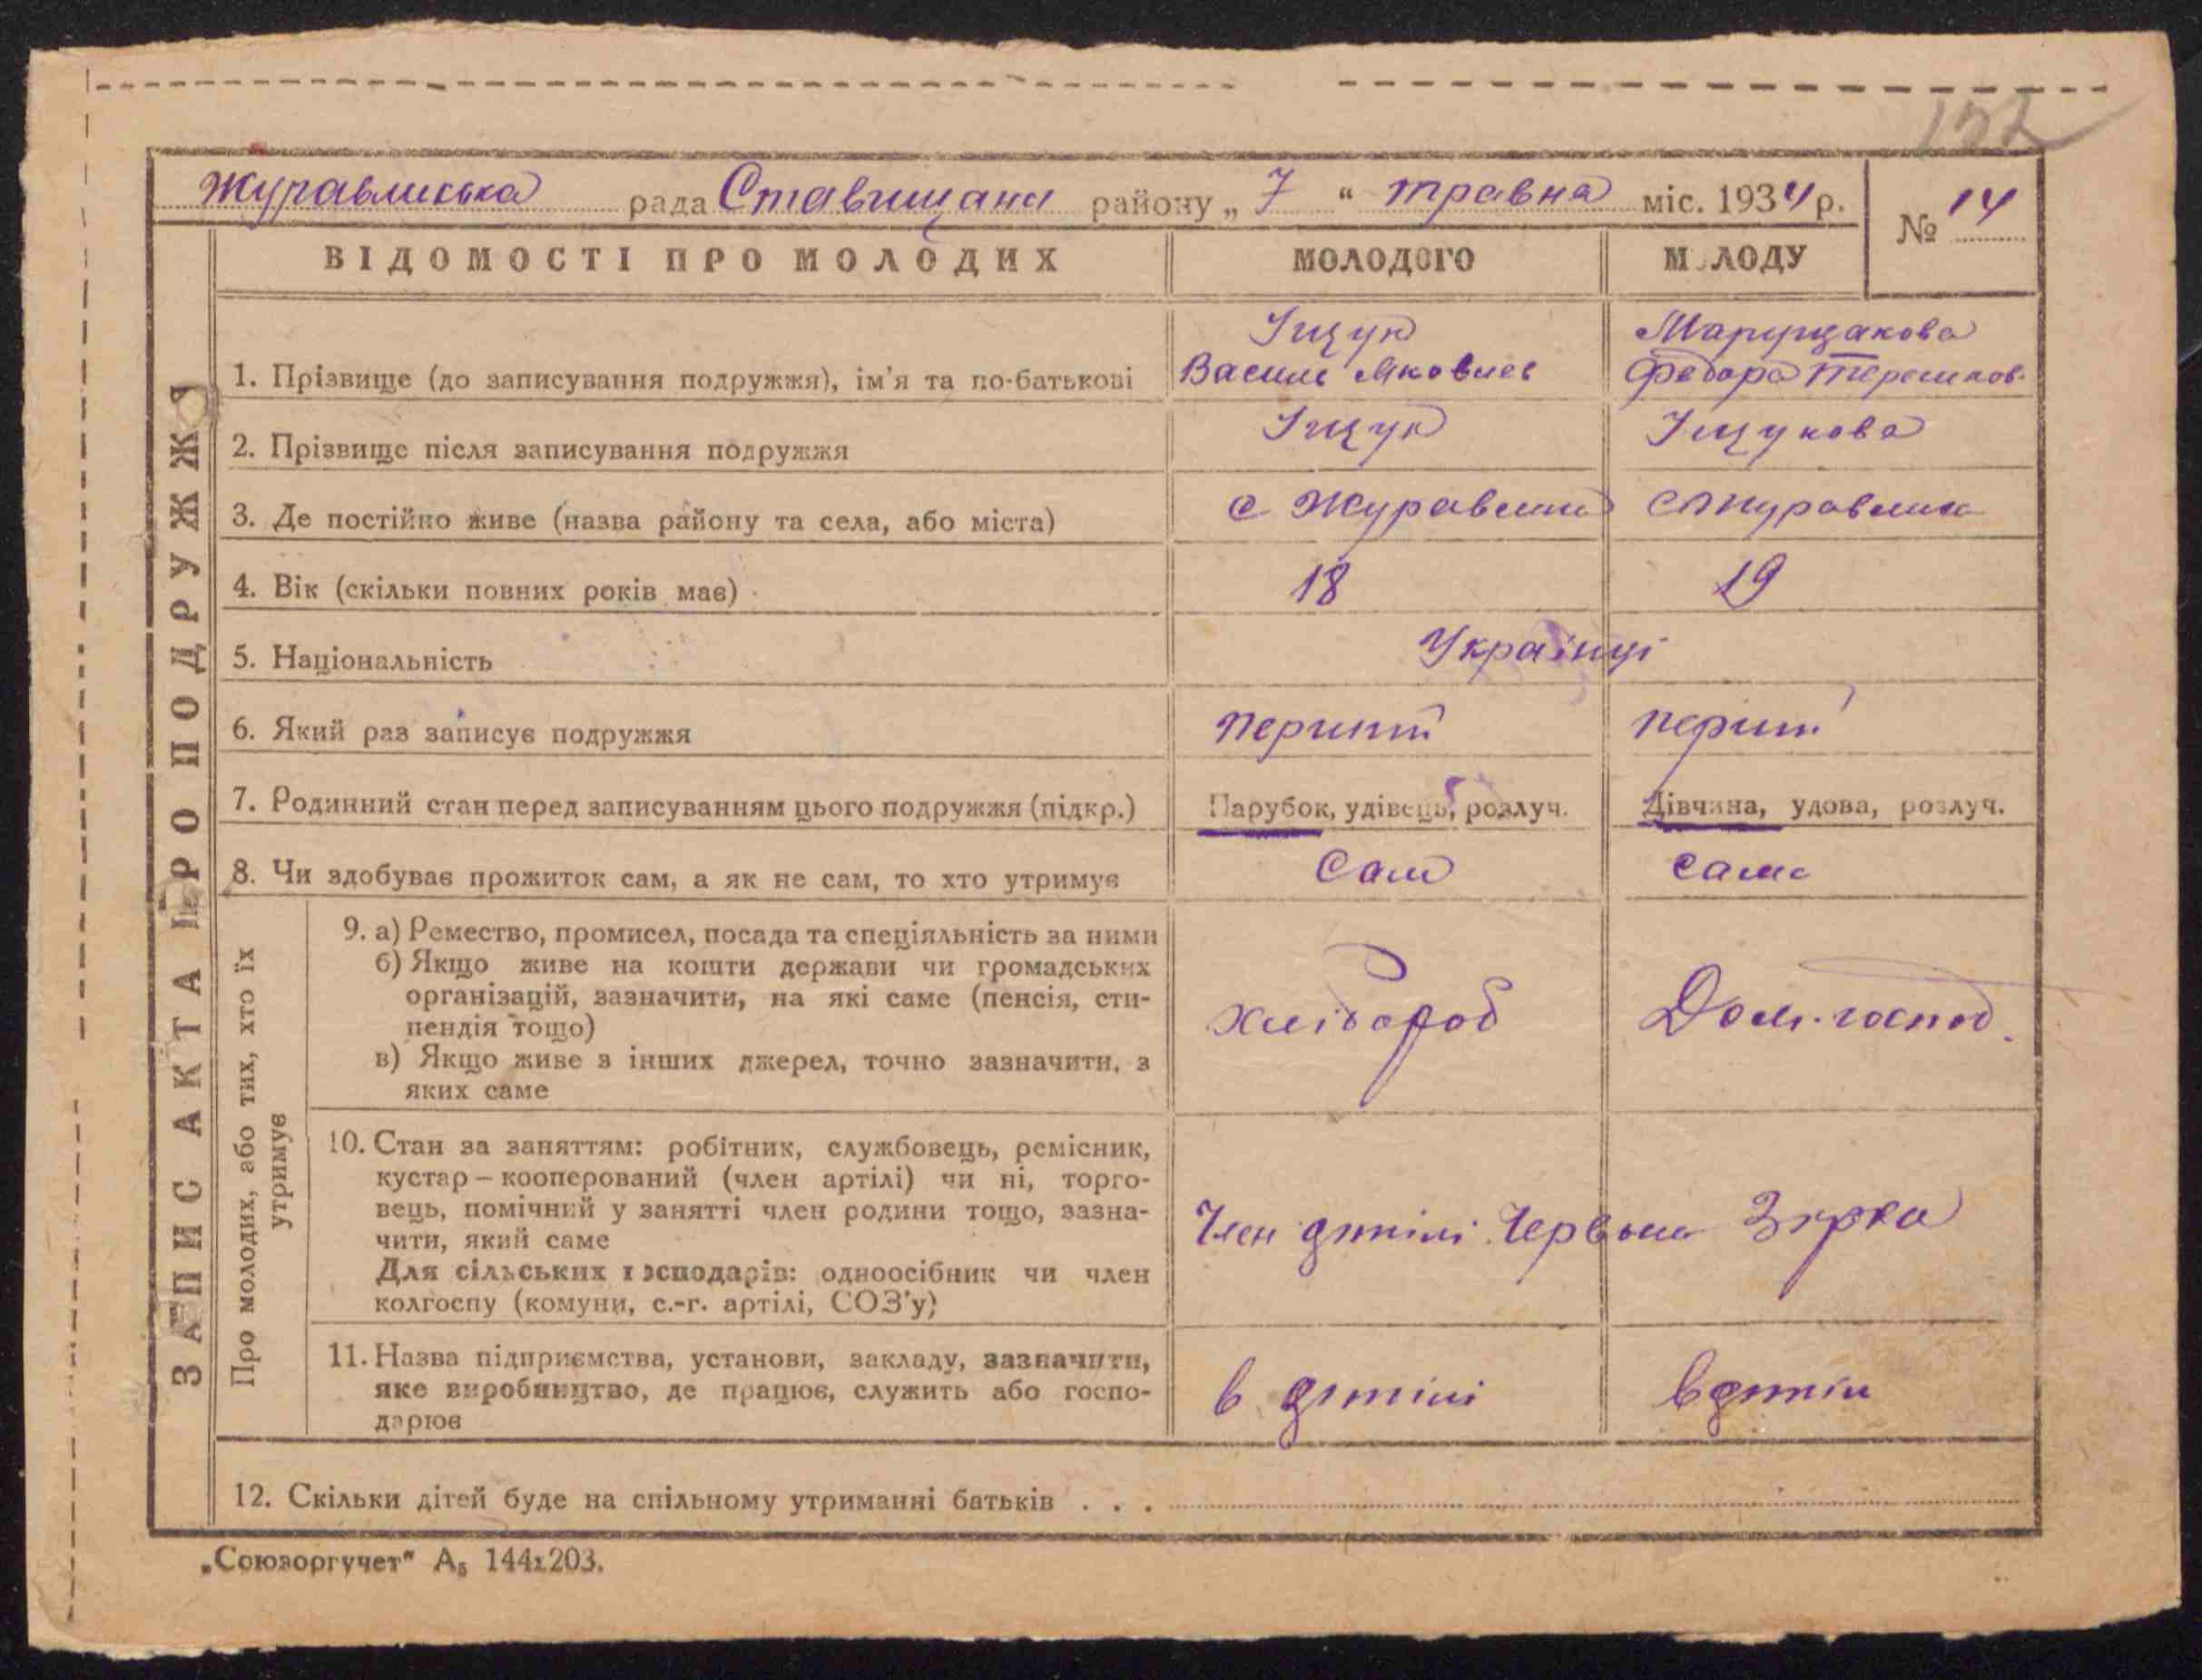 132
Журавлиська рада Ставищан району „ 7 “ травна міс. 1934 р.
№ 14
ВІДОМОСТІ ПРО МОЛОДИХ
МОЛОДОГО
МОЛОДУ
ЗАПИС АКТА ПРО ПОДРУЖЖЯ
1. Прізвище (до записування подружжя), ім'я та по-батькові
Іщук
Василь Яковлев
Марущакова
Федора Терешков.
2. Прізвище після записування подружжя
Іщук
Іщукова
3. Де постійно живе (назва району та села, або міста)
с Журавлиха
с Журавлиха
4. Вік (скільки повних років має)
18
19
5. Національність
Українці
6. Який раз записує подружжя
перший
перший
7. Родинний стан перед записуванням цього подружжя (підкр.)
Парубок, удівець, розлуч.
Дівчина, удова, розлуч.
8. Чи здобуває прожиток сам, а як не сам, то хто утримує
Сам
сама
Про молодих, або тих, хто їх
утримує
9. а) Ремество, промисел, посада та спеціяльність за ними
б) Якщо живе на кошти держави чи громадських
організацій, зазначити, на які саме (пенсія, сти-
пендія тощо)
в) Якщо живе з інших джерел, точно зазначити, з
яких саме
хлібороб
Дом. господ.
10. Стан за заняттям: робітник, службовець, ремісник,
кустар – кооперований (член артілі) чи ні, торго-
вець, помічний у занятті член родини тощо, зазна-
чити, який саме
Для сільських господарів: одноосібник чи член
колгоспу (комуни, с.-г. артілі, СОЗ'у)
Член артілі Червона Зірка
11. Назва підприємства, установи, закладу, зазначити,
яке виробництво, де працює, служить або госпо-
дарює
в артілі
в артілі
12. Скільки дітей буде на спільному утриманні батьків . . .
„Союзоргучет" А₅ 144x203.